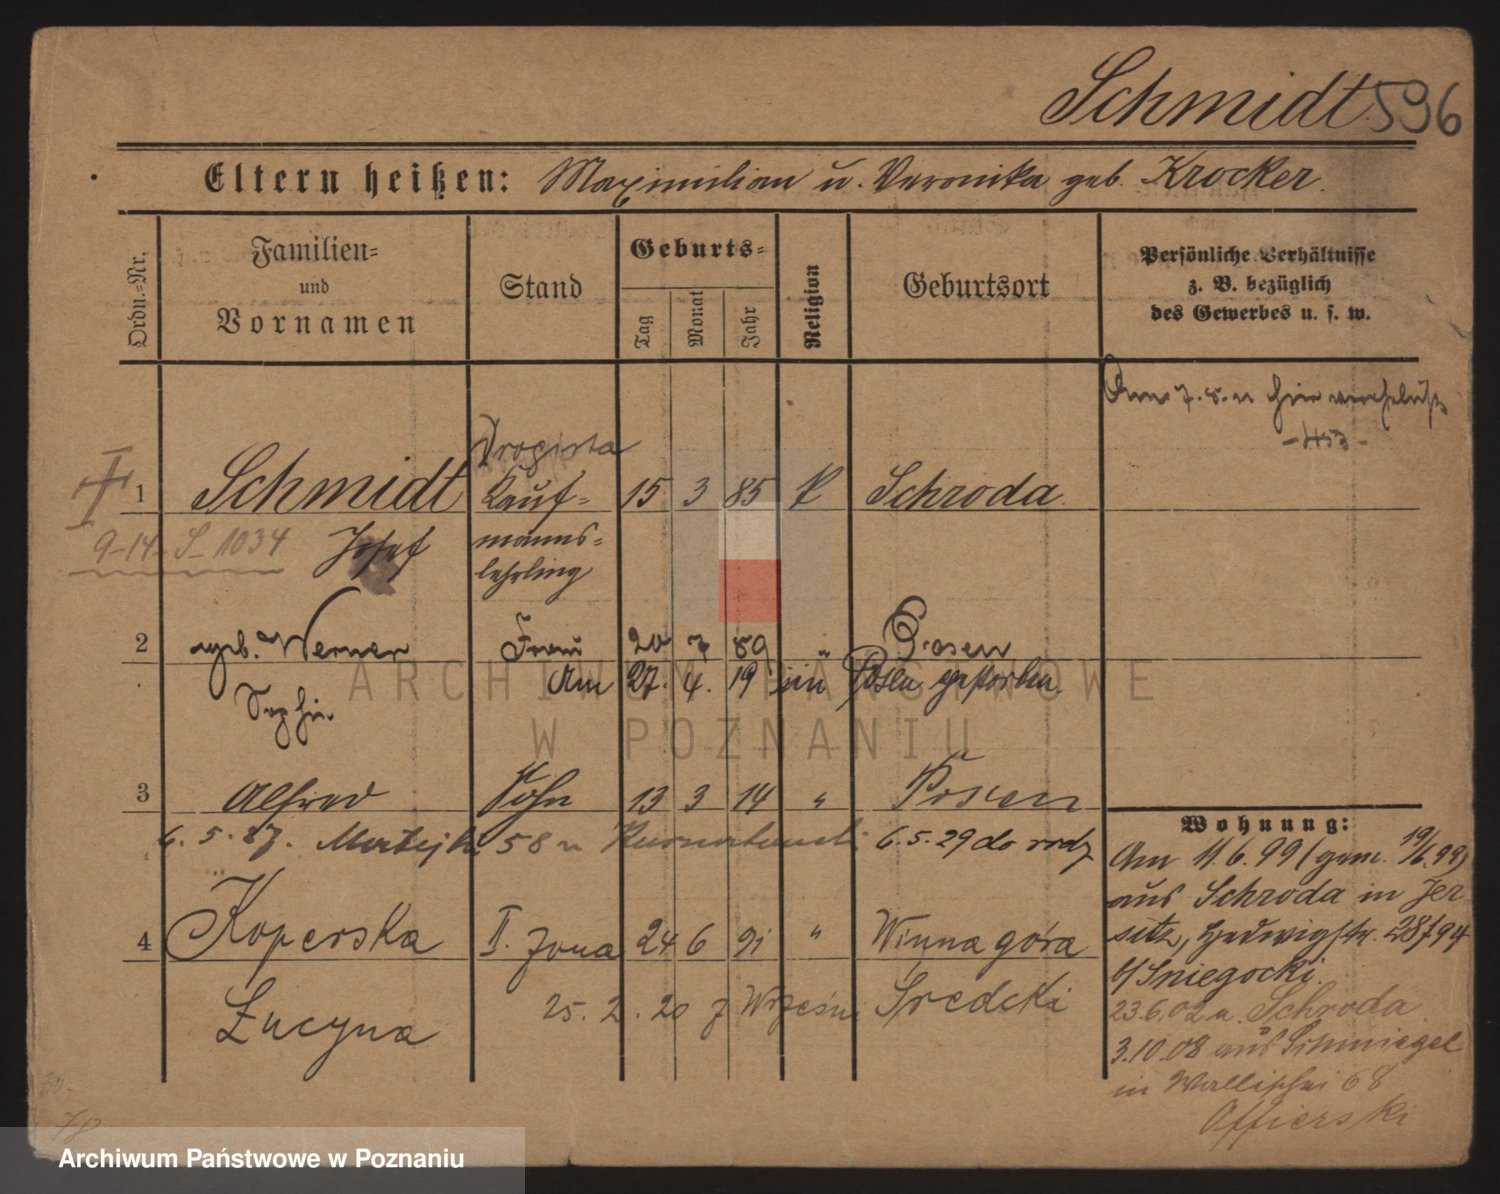 Schmidt 596
Eltern heißen: Maximilian u. Veronika geb. Krocker.
Ordn.-Nr.
Familien-
und
Vornamen
Stand
Geburts-
Tag
Monat
Jahr
Religion
Geburtsort
Persönliche Verhältnisse
z. B. bezüglich
des Gewerbes u. s. w.
Am 7. 8. 11 hier verehelicht
-453-
Drogista
1 Schmidt Kauf- 15 3 85 k Schroda.
9-14 S-1034 Josef manns-
lehrling
2 geb. Werner Frau 20 7 89 " Posen
Am 27. 4. 19 in Posen gestorben.
Sophie
3 Alfred Sohn 13 3 14 " Posen
6. 5. 27. Matejki 58 6.5.29 do rodz
4 Koperska II. żona 24 6 91 " Winna góra
Łucyna 25. 2. 20 z Wrześni Średcki
Wohnung:
Am 11.6.99 (gem. 19/6.99)
aus Schroda in Jer
sitz, Hedwigstr. 28/94
b/Sniegocki
23.6.02 n. Schroda.
3.10.08 aus Schmiegel
in Wallischei 68
Offierski
78
ARCHIWUM PAŃSTWOWE
W POZNANIU
Archiwum Państwowe w Poznaniu